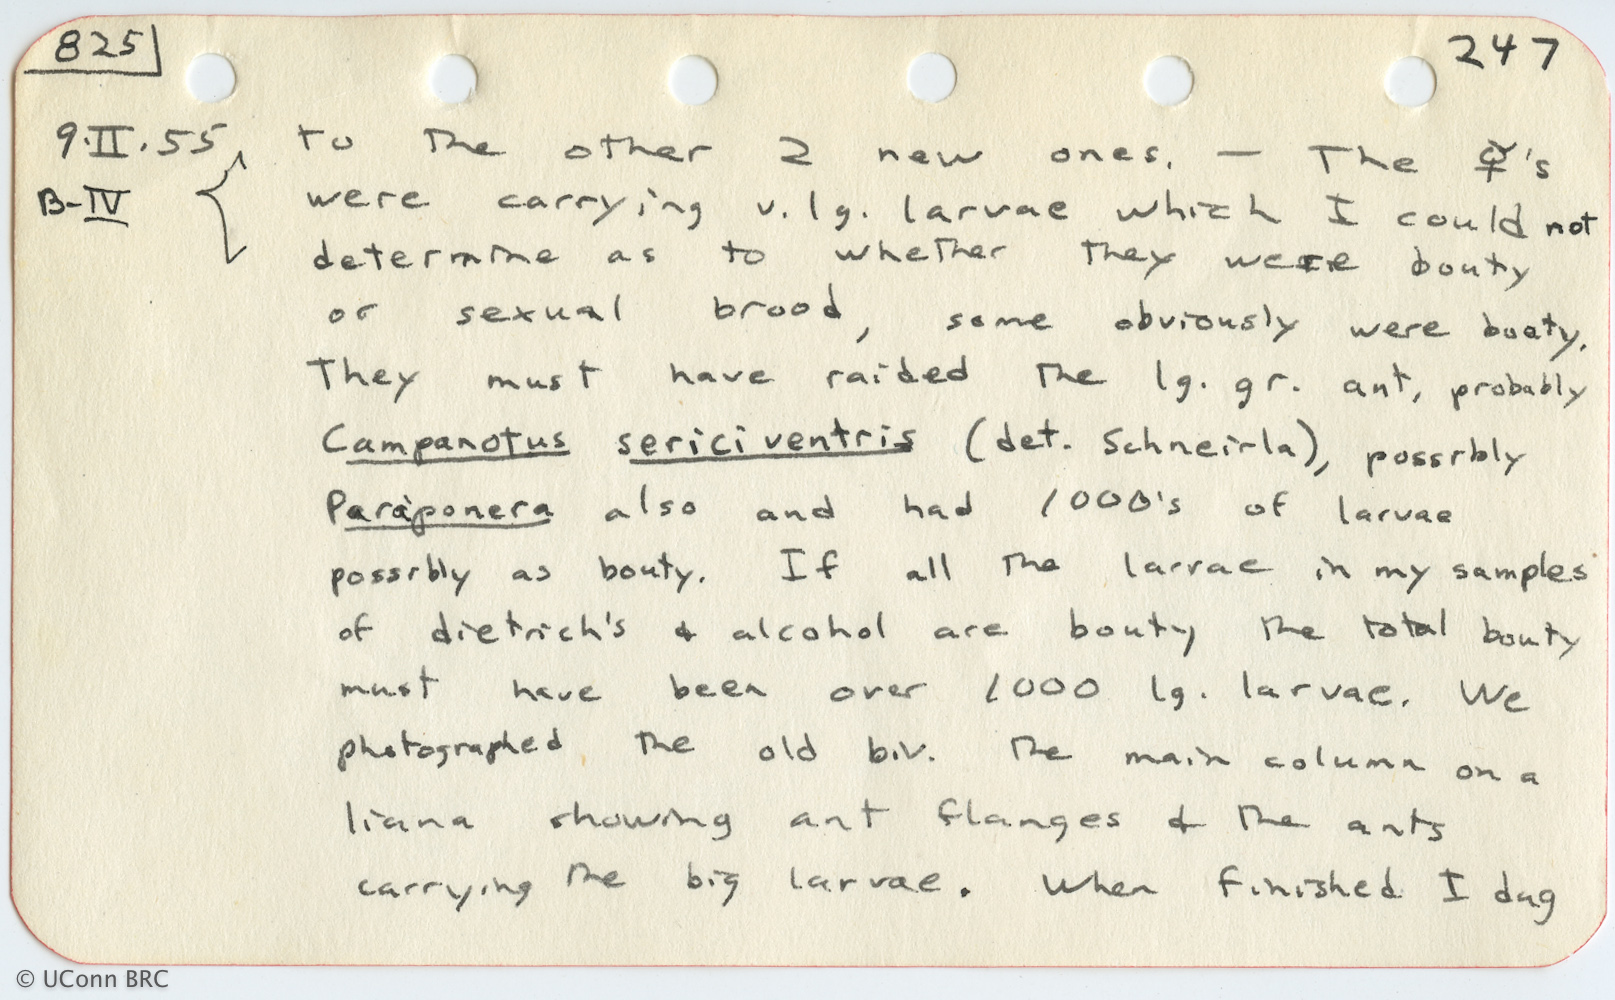 825 247
9.II.55 to the other 2 new ones. — The ☿'s
B-IV were carrying v. lg. larvae which I could not
determine as to whether they were bouty
or sexual brood, some obviously were bouty.
They must have raided the lg. gr. ant, probably
Campanotus sericiventris (det. Schneirla), possibly
Paraponera also and had 1000's of larvae
possibly as bouty. If all the larvae in my samples
of dietrich's & alcohol are bouty the total bouty
must have been over 1000 lg. larvae. We
photographed the old biv. The main column on a
liana showing ant flanges & the ants
carrying the big larvae. When finished I dug
© UConn BRC